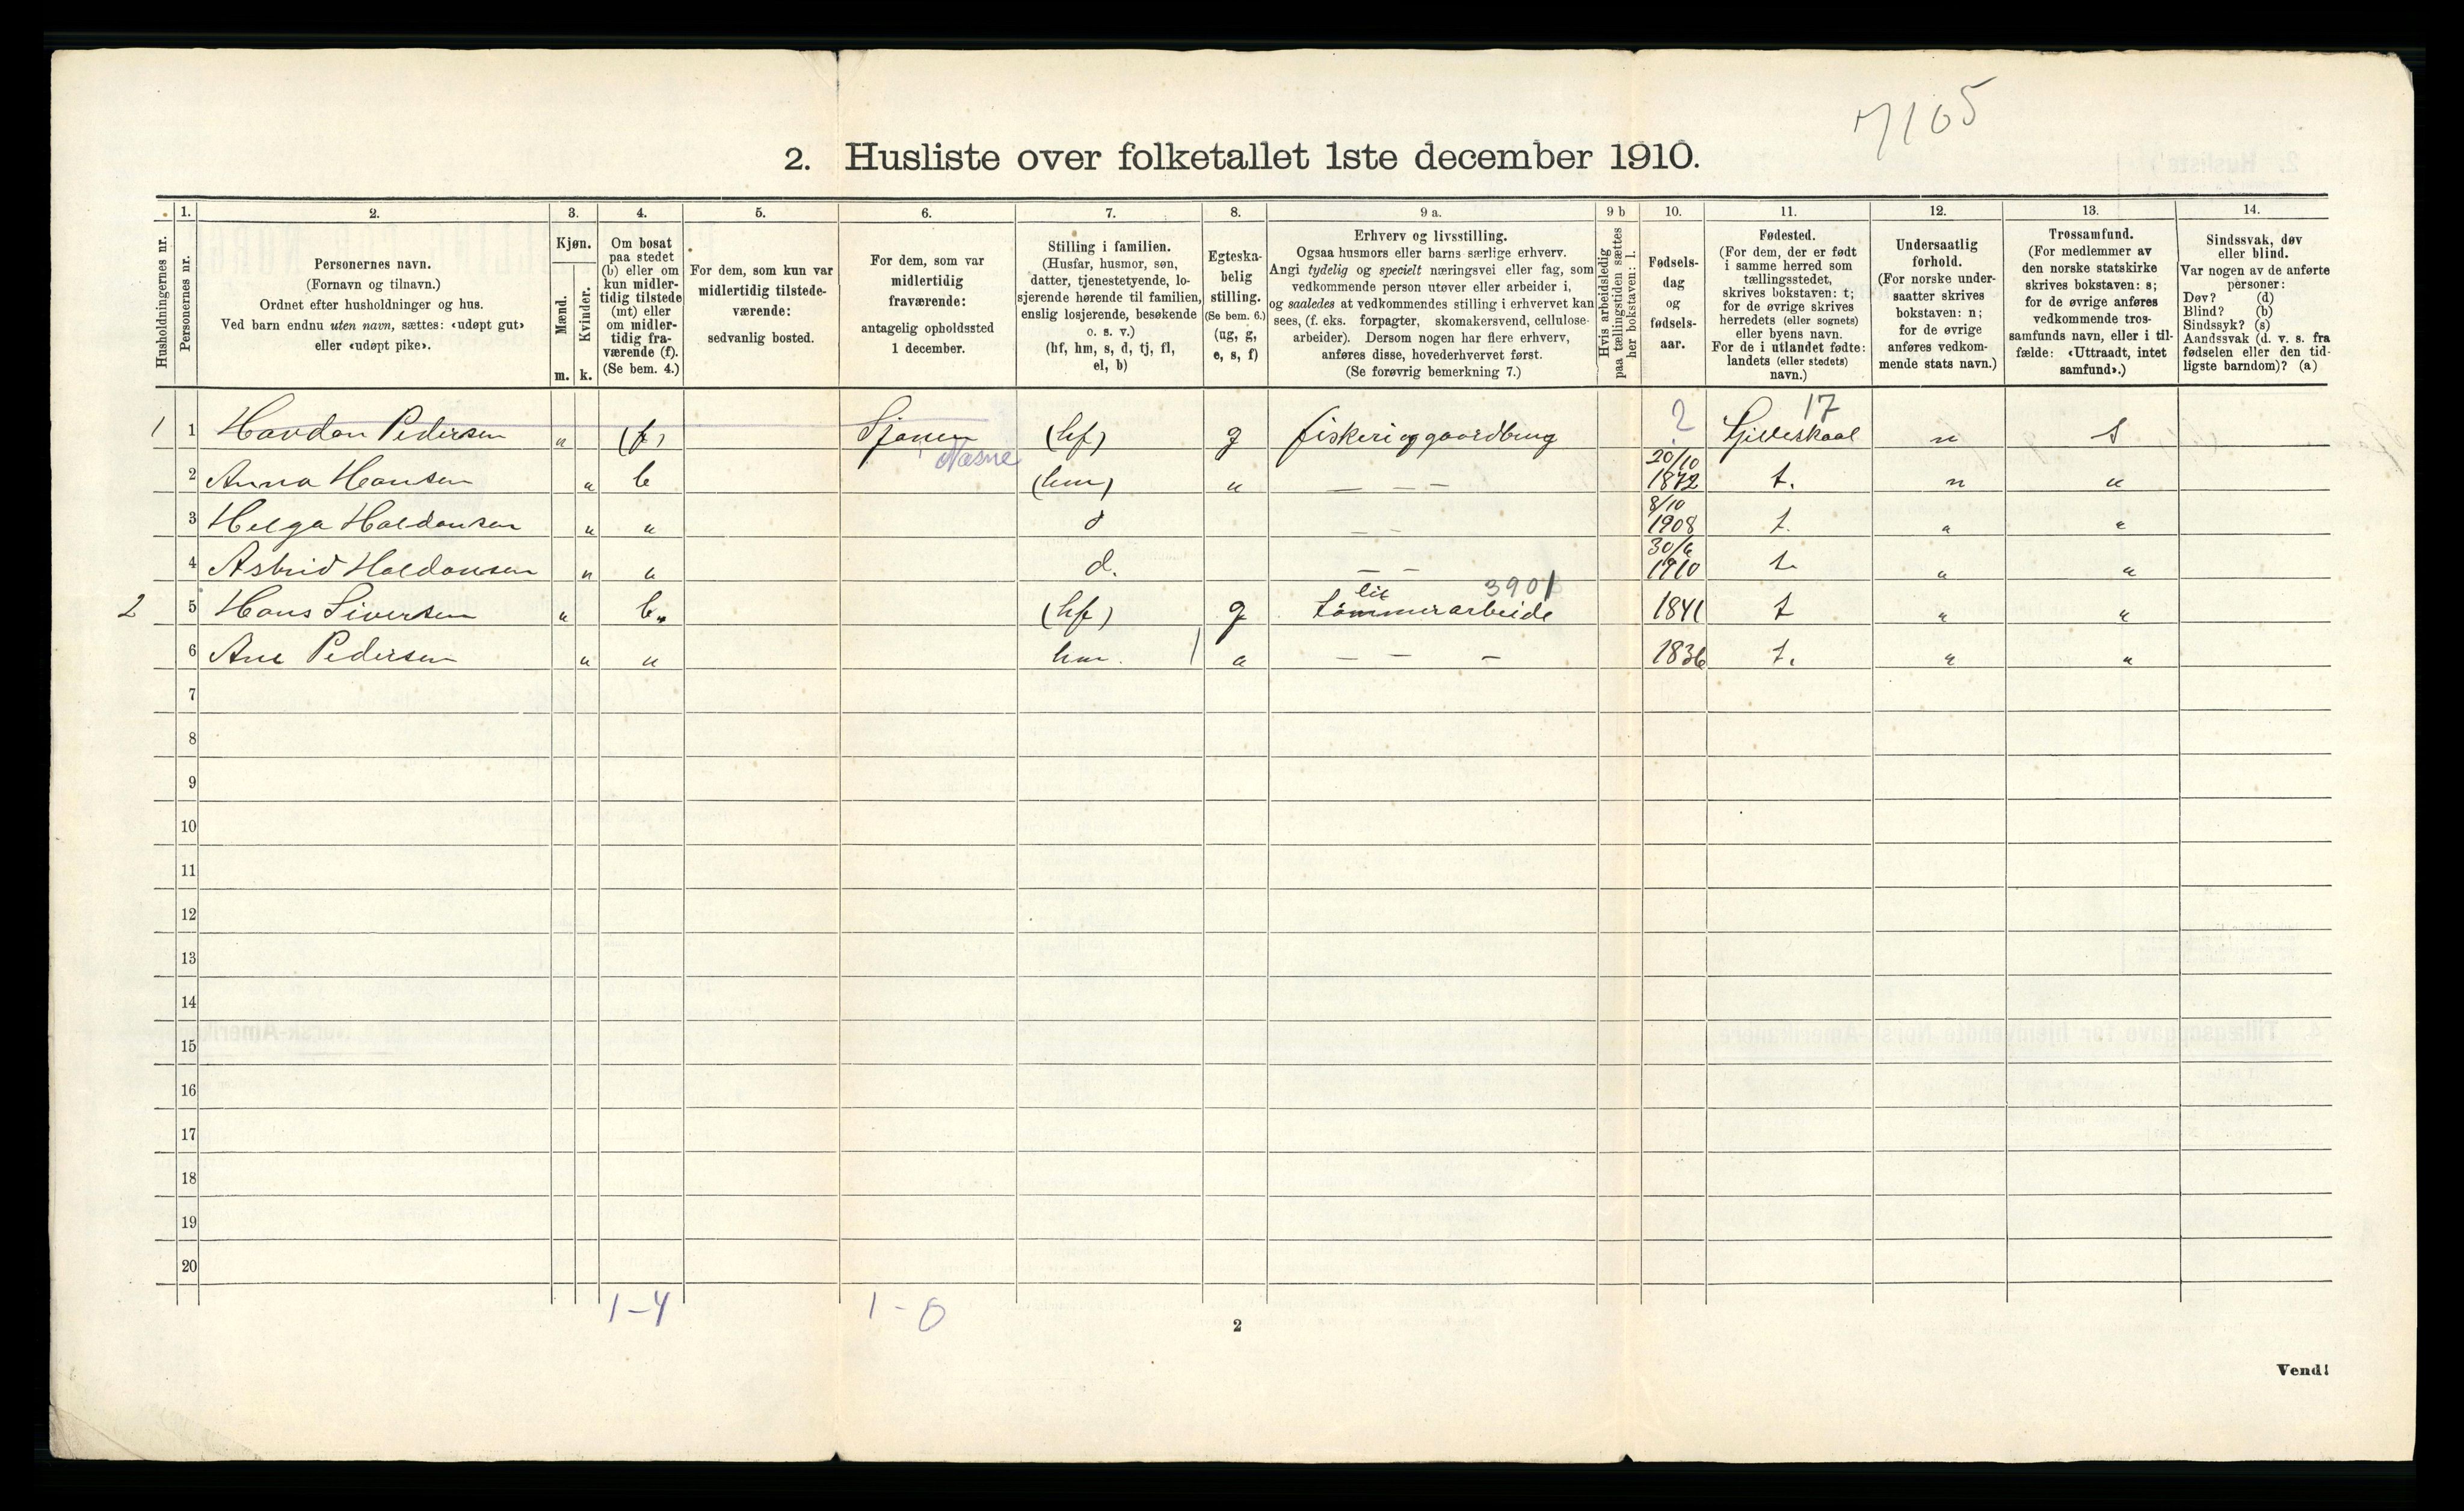 7105
2. Husliste over folketallet 1ste december 1910.
Husholdningernes nr.
1.
Personernes nr.
2.
Personernes navn.
(Fornavn og tilnavn.)
Ordnet efter husholdninger og hus.
Ved barn endnu uten navn, sættes: «udøpt gut»
eller «udøpt pike».
3.
Kjøn.
Mænd.
Kvinder.
m. k.
4.
Om bosat
paa stedet
(b) eller om
kun midler-
tidig tilstede
(mt) eller
om midler-
tidig fra-
værende (f).
(Se bem. 4.)
5.
For dem, som kun var
midlertidig tilstede-
værende:
sedvanlig bosted.
6.
For dem, som var
midlertidig
fraværende:
antagelig opholdssted
1 december.
7.
Stilling i familien.
(Husfar, husmor, søn,
datter, tjenestetyende, lo-
sjerende hørende til familien,
enslig losjerende, besøkende
o. s. v.)
(hf, hm, s, d, tj, fl,
el, b)
8.
Egteska-
belig
stilling.
(Se bem. 6.)
(ug, g,
e, s, f)
9 a.
Erhverv og livsstilling.
Ogsaa husmors eller barns særlige erhverv.
Angi tydelig og specielt næringsvei eller fag, som
vedkommende person utøver eller arbeider i,
og saaledes at vedkommendes stilling i erhvervet kan
sees, (f. eks. forpagter, skomakersvend, cellulose-
arbeider). Dersom nogen har flere erhverv,
anføres disse, hovederhvervet først.
(Se forøvrig bemerkning 7.)
9 b
Hvis arbeidsledig
paa tællingstiden sættes
her bokstaven: l.
10.
Fødsels-
dag
og
fødsels-
aar.
11.
Fødested.
(For dem, der er født
i samme herred som
tællingsstedet,
skrives bokstaven: t;
for de øvrige skrives
herredets (eller sognets)
eller byens navn.
For de i utlandet fødte:
landets (eller stedets)
navn.)
12.
Undersaatlig
forhold.
(For norske under-
saatter skrives
bokstaven: n;
for de øvrige
anføres vedkom-
mende stats navn.)
13.
Trossamfund.
(For medlemmer av
den norske statskirke
skrives bokstaven: s;
for de øvrige anføres
vedkommende tros-
samfunds navn, eller i til-
fælde: «Uttraadt, intet
samfund».)
14.
Sindssvak, døv
eller blind.
Var nogen av de anførte
personer:
Døv? (d)
Blind? (b)
Sindssyk? (s)
Aandssvak (d. v. s. fra
fødselen eller den tid-
ligste barndom)? (a)
17
1 1 Havdan Pedersen " (f) Sjonen (hf) g fiskeri og gaardbrug ? Gilleskaal n s
Næsne
2 Anna Hansen " b (hm) " — — — 20/10 1872 t. n "
3 Helga Haldansen " " d — — 8/10 1908 t. " "
4 Astrid Haldansen " " d. — — 30/6 1910 t. " "
lit 3901
2 5 Hans Siversen " b. (hf) g tømmerarbeide 1841 t " "
6 Ane Pedersen " " hm. " — — — 1836 t. " "
7
8
9
10
11
12
13
14
15
16
17
18
19
20
1-4 1-0
2
Vend!